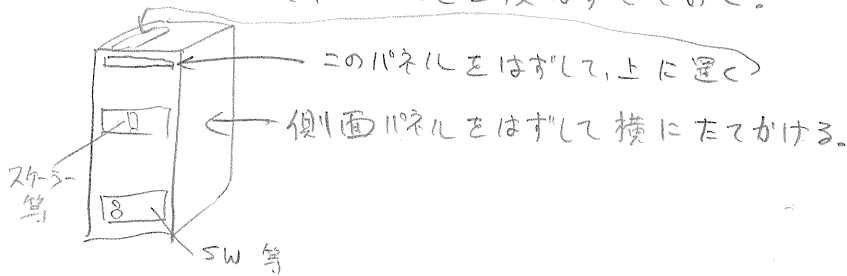 このパネルをはずして、上に置く
側面パネルをはずして横にたてかける。
スケーラー
等
SW 等